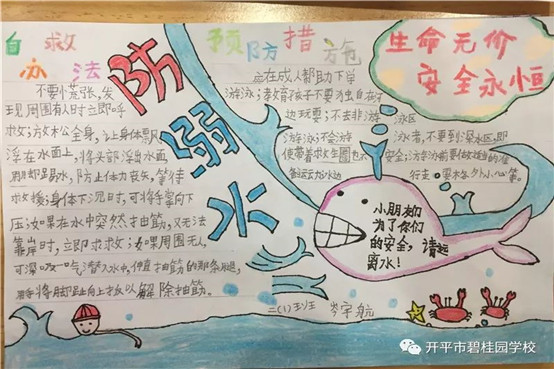 自救
办法
不要慌张,发
现周围有人时立即呼
救;放松全身,让身体飘
浮在水面上,将头部浮出水面
用脚踢水,防止体力丧失,等待
救援;身体下沉时,可将手掌向下
压;如果在水中突然抽筋,又无法
靠岸时,立即求救;如果周围无人,
可深吸一口气潜入水中,伸直抽筋的那条腿,
用手将脚趾向上扳以解除抽筋。
防溺水
预防措施
应在成人帮助下学
游泳;教育孩子不要独自在河
边玩耍;不去非游泳区
游泳;不会游泳者,不要到深水区,即
使带着救生圈也不安全;游泳前要做适当的准
行走 要格外小心等。
生命无价
安全永恒
小朋友们
为了你们
的安全,请远
离水!
二(1)班 岑宇航
开平市碧桂园学校